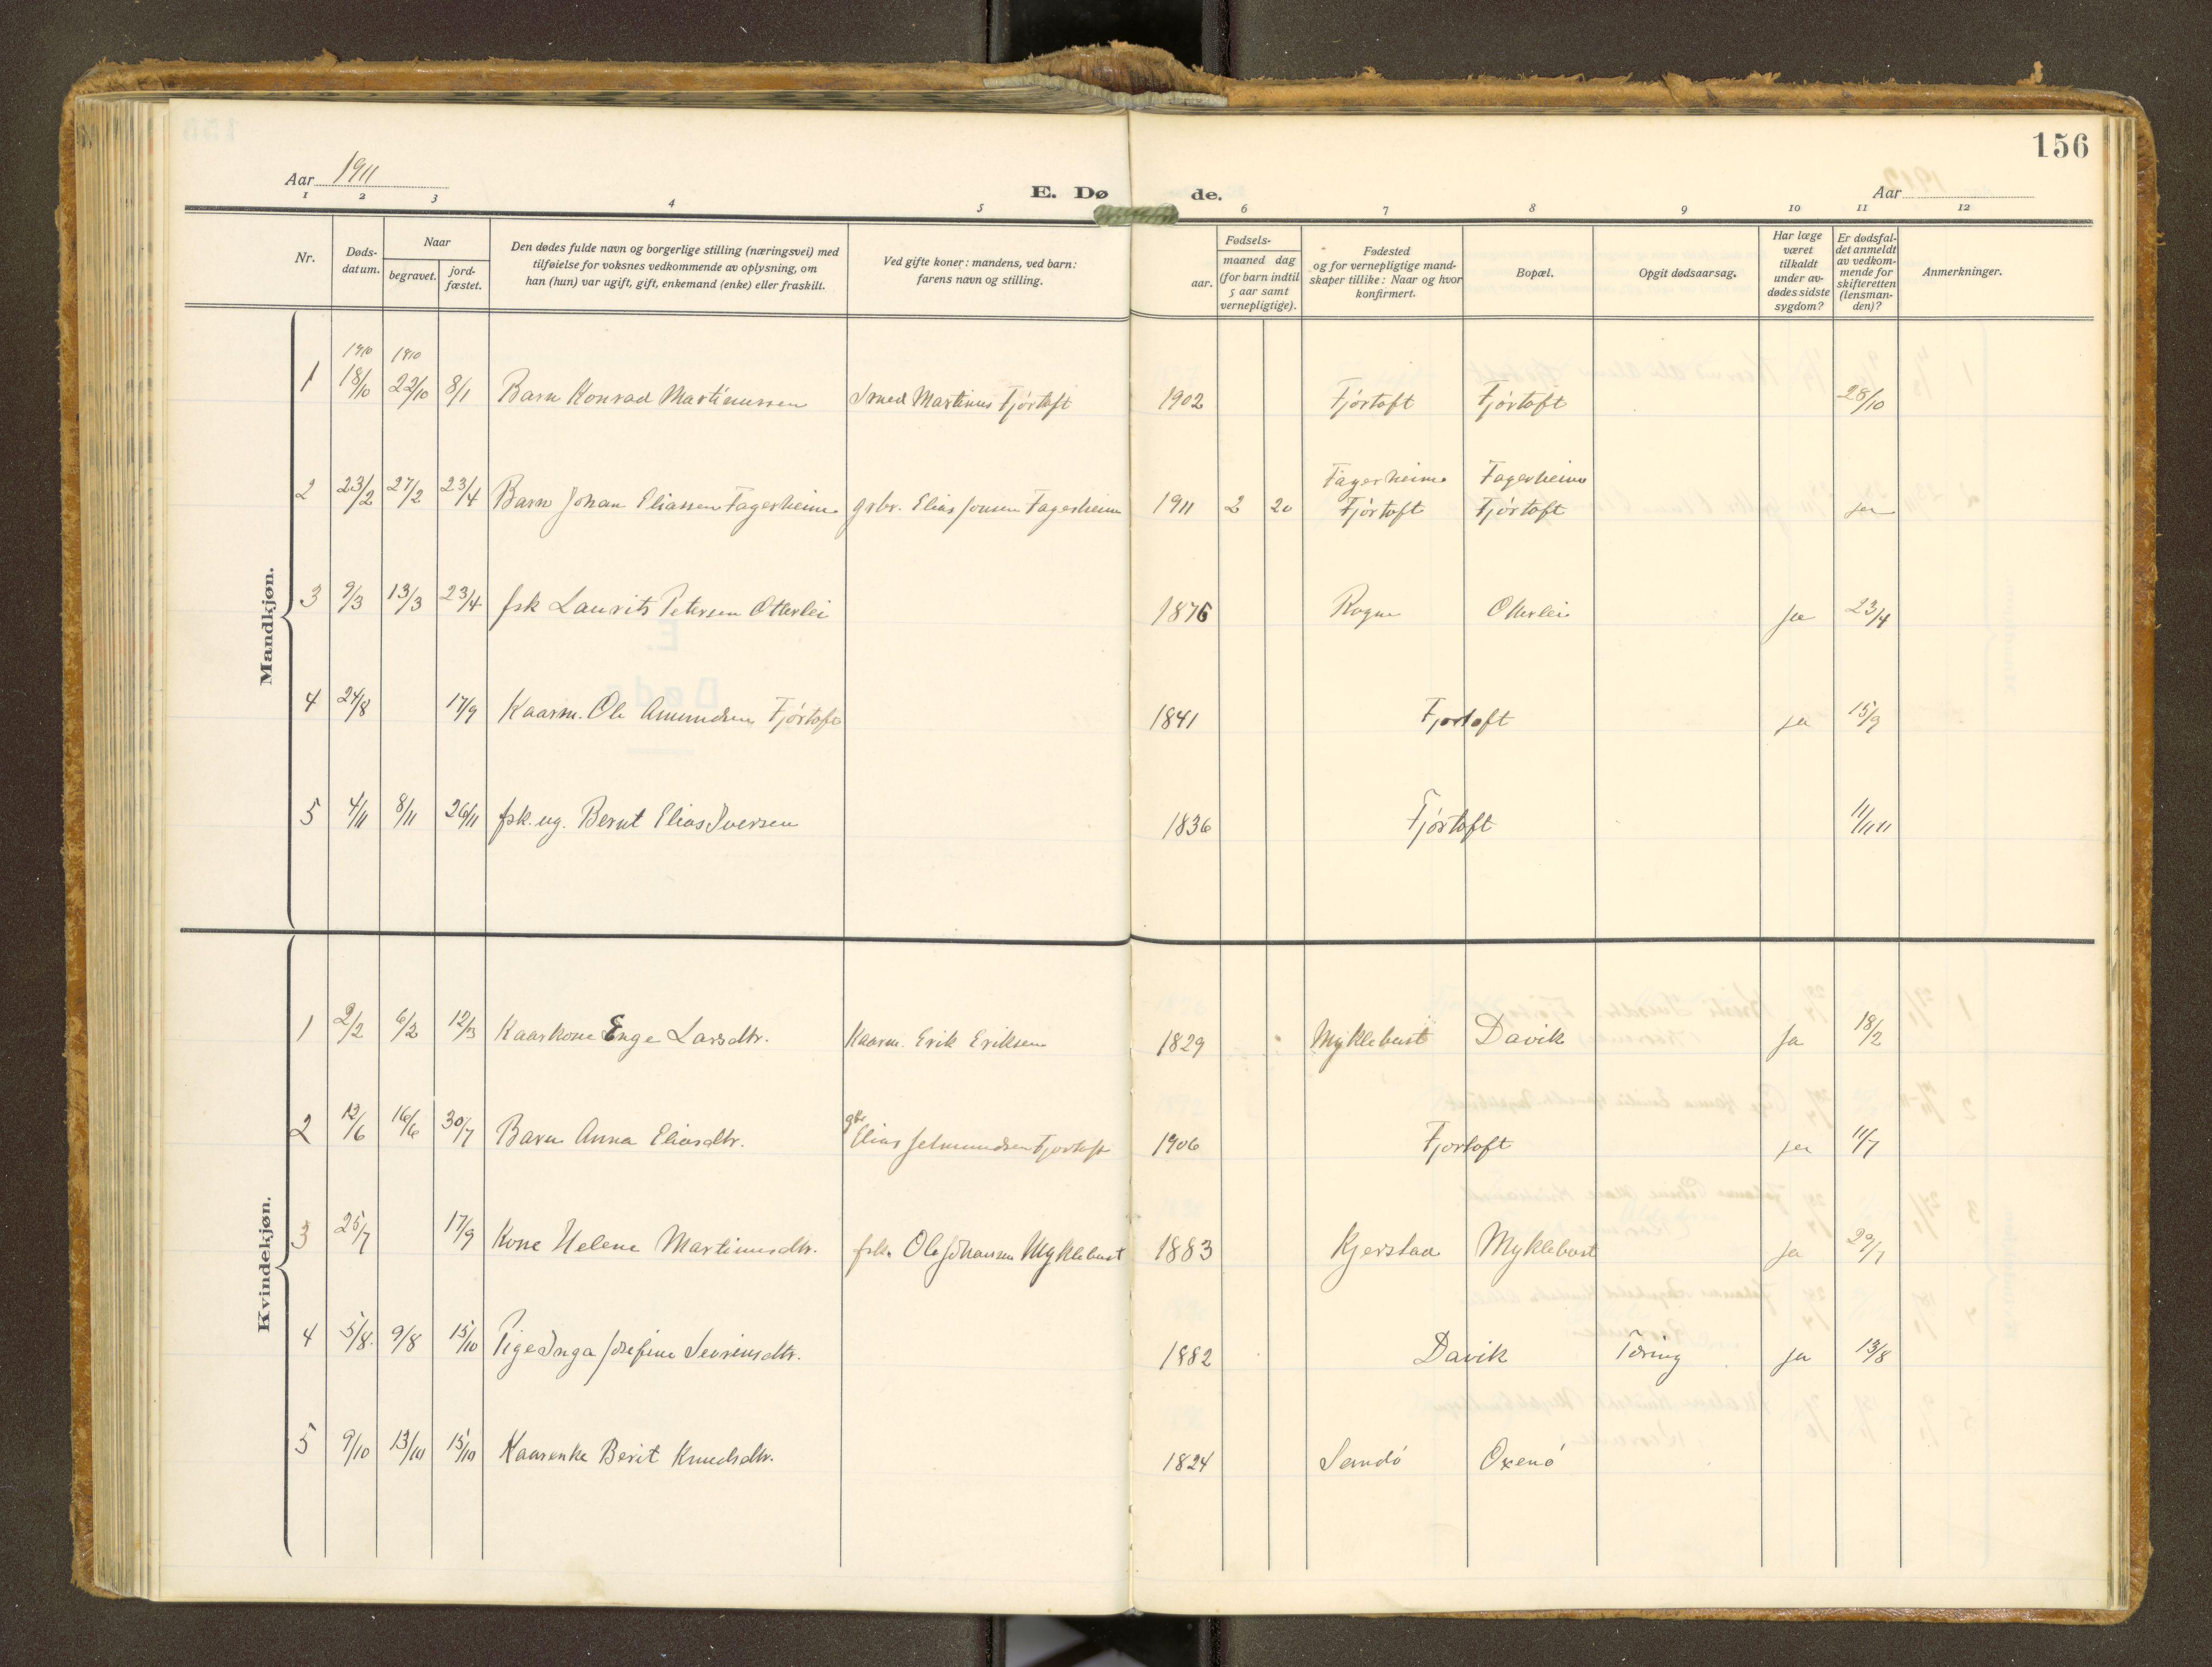 156
Aar 1911
E. Dø de.
Aar
1 2 3 4 5 6 7 8 9 10 11 12
Nr.
Døds-
datum.
Naar
begravet.
jord-
fæstet.
Den dødes fulde navn og borgerlige stilling (næringsvei) med
tilføielse for voksnes vedkommende av oplysning, om
han (hun) var ugift, gift, enkemand (enke) eller fraskilt.
Ved gifte koner: mandens, ved barn:
farens navn og stilling.
Fødsels-
aar.
maaned dag
(for barn indtil
5 aar samt
vernepligtige).
Fødested
og for vernepligtige mand-
skaper tillike: Naar og hvor
konfirmert.
Bopæl.
Opgit dødsaarsag.
Har læge
været
tilkaldt
under av-
dødes sidste
sygdom?
Er dødsfal-
det anmeldt
av vedkom-
mende for
skifteretten
(lensman-
den)?
Anmerkninger.
Mandkjøn.
1910 1910
1 18/10 22/10 8/1 Barn Konrad Martinussen Smed Martinus Fjórtoft 1902 Fjórtoft Fjórtoft 28/10
Fagerheim Fagerheim
2 23/2 27/2 23/4 Barn Johan Eliassen Fagerheim grbr. Elias Jonsen Fagerheim 1911 2 20 Fjórtoft Fjórtoft ja
3 9/3 13/3 23/4 fsk Laurits Petersen Otterlei 1876 Rogne Otterlei ja 23/4
4 24/8 17/9 Kaarm. Ole Amundsen Fjórtoft 1841 Fjortoft ja 15/9
5 4/11 8/11 26/11 fsk. ug. Bernt Elias Iversen 1836 Fjórtoft 11/11 11
Kvindekjøn.
1 2/2 6/2 12/3 Kaarkone Enge Larsdtr. Kaarm. Erik Eriksen 1829 Myklebust Davik Ja 18/2
gbr
2 12/6 16/6 30/7 Barn Anna Eliasdtr. Elias Jelmundsen Fjortoft 1906 Fjortoft ja 11/7
3 25/7 17/9 Kone Helene Martinusdtr. fsk. Ole Johansen Myklebust 1883 Kjerstad Myklebust ja 29/7
4 5/8. 9/8 15/10 Pige Inga Josefine Sevrinsdtr. 1882 Davik Tæring ja 13/8
5 9/10 13/10 15/10 Kaarenke Berit Knudsdtr. 1824 Sandó Oxenó